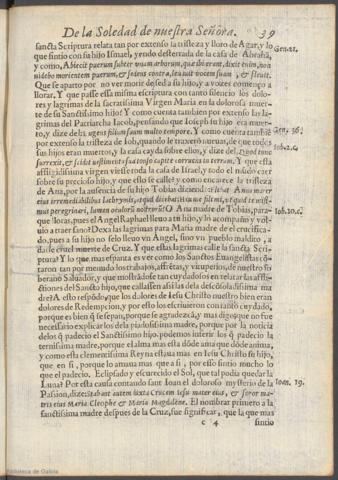 De la Soledad de nuestra Señora. 39
sancta Scriptura relata tan por extenso la tristeza y lloro de Agar, y lo
que sintio con su hijo Ismael, yendo desterrada de la casa de Abrahã, Genes.
y como, Abiecit puerum subter unam arborum, quæ ibi erant, dixit enim, non
videbo morientem puerum, & sedens contra, levavit vocem suam, & flevit.
Que se aparto por no ver morir de sed a su hijo, y a vozes començo a
llorar. Y que passe essa misma escriptura con tanto silencio los dolo-
res y lagrimas de la sacratissima Virgen Maria en la dolorosa muer-
te de su Sanctissimo hijo? Y como cuenta tambien por extenso las la-
grimas del Patriarcha Iacob, pensando que Ioseph su hijo era muer
to, y dize del: Lugens filium suum multo tempore. Y como cuenta tambiẽ Gen. 36.
por extenso la tristeza de Iob, quando le traxeron nuevas, de que todos
sus hijos eran muertos, y la casa cayda sobre ellos, y dize del, Quod tunc Iob. 1. c.
surrexit, & scidit vestimenta sua tonso capite corruens in terram. Y que esta
affligidissima virgen viesse toda la casa de Israel, y todo el mũdo caer
sobre su precioso hijo, y que esto se calle y como encarece la tristeza
de Ana, por la ausencia de su hijo Tobias diciendo:
peregrinari, lumen oculorũ nostrorũ? O Ana madre de Tobias, para- Iob. 10. c.
que lloras, pues el Angel Raphael lleuo a tu hijo, y lo acompaño y vol-
uio a traer sano? Dexa las lagrimas para Maria madre de el crucifica-
do, pues a su hijo no selo lleuo vn Angel, sino vn pueblo maldito, a
darle cruel muerte de Cruz. Y que estas lagrimas calle la sancta Scri-
ptura? Y lo que mas espanta es ver como los Sanctos Euangelistas cõ-
taron tan por menudo los trabajos, affrẽtas, y vituperios, de nuestro so
berano Saluador, y que mostrãdose tan cuydadosos en relatar las affli-
ctiones del Sancto hijo, que callassen assi las dela desconsoladissima ma
dre? A esto respõdo, que los dolores de Iesu Christo nuestro bien eran
dolores de Redempcion, y por esto los escriuieron con tanto cuydado,
porque es bien q̃ se sepan, porque se agradezcã, y mas digo: que no fue
necessario explicar los dela piadosissima madre, porque por la noticia
delos q̃ padecio el Sanctissimo hijo, podemos inferir los q̃ padecio la
ternissima madre, porque el alma mas esta dõde ama que dõde anima,
y como esta clementissima Reyna estaua mas en Iesu Christo su hijo,
que en si, porque lo amaua mas que a si, por esso sintio mucho lo
que el padecio. Eclipsado y escurecido el Sol, que tal podia quedar la
Luna? Por esta causa contando sant Ioan el doloroso mysterio de la Ioan. 19.
Passion, dize: Stabant autem iuxta Crucem Iesu mater eius, & soror ma-
tris eius Maria Cleophæ & Maria Magdalene. El nombrar primero a la
sanctissima madre despues de la Cruz, fue significar, que la que mas
c 4 sintio
Biblioteca de Galicia